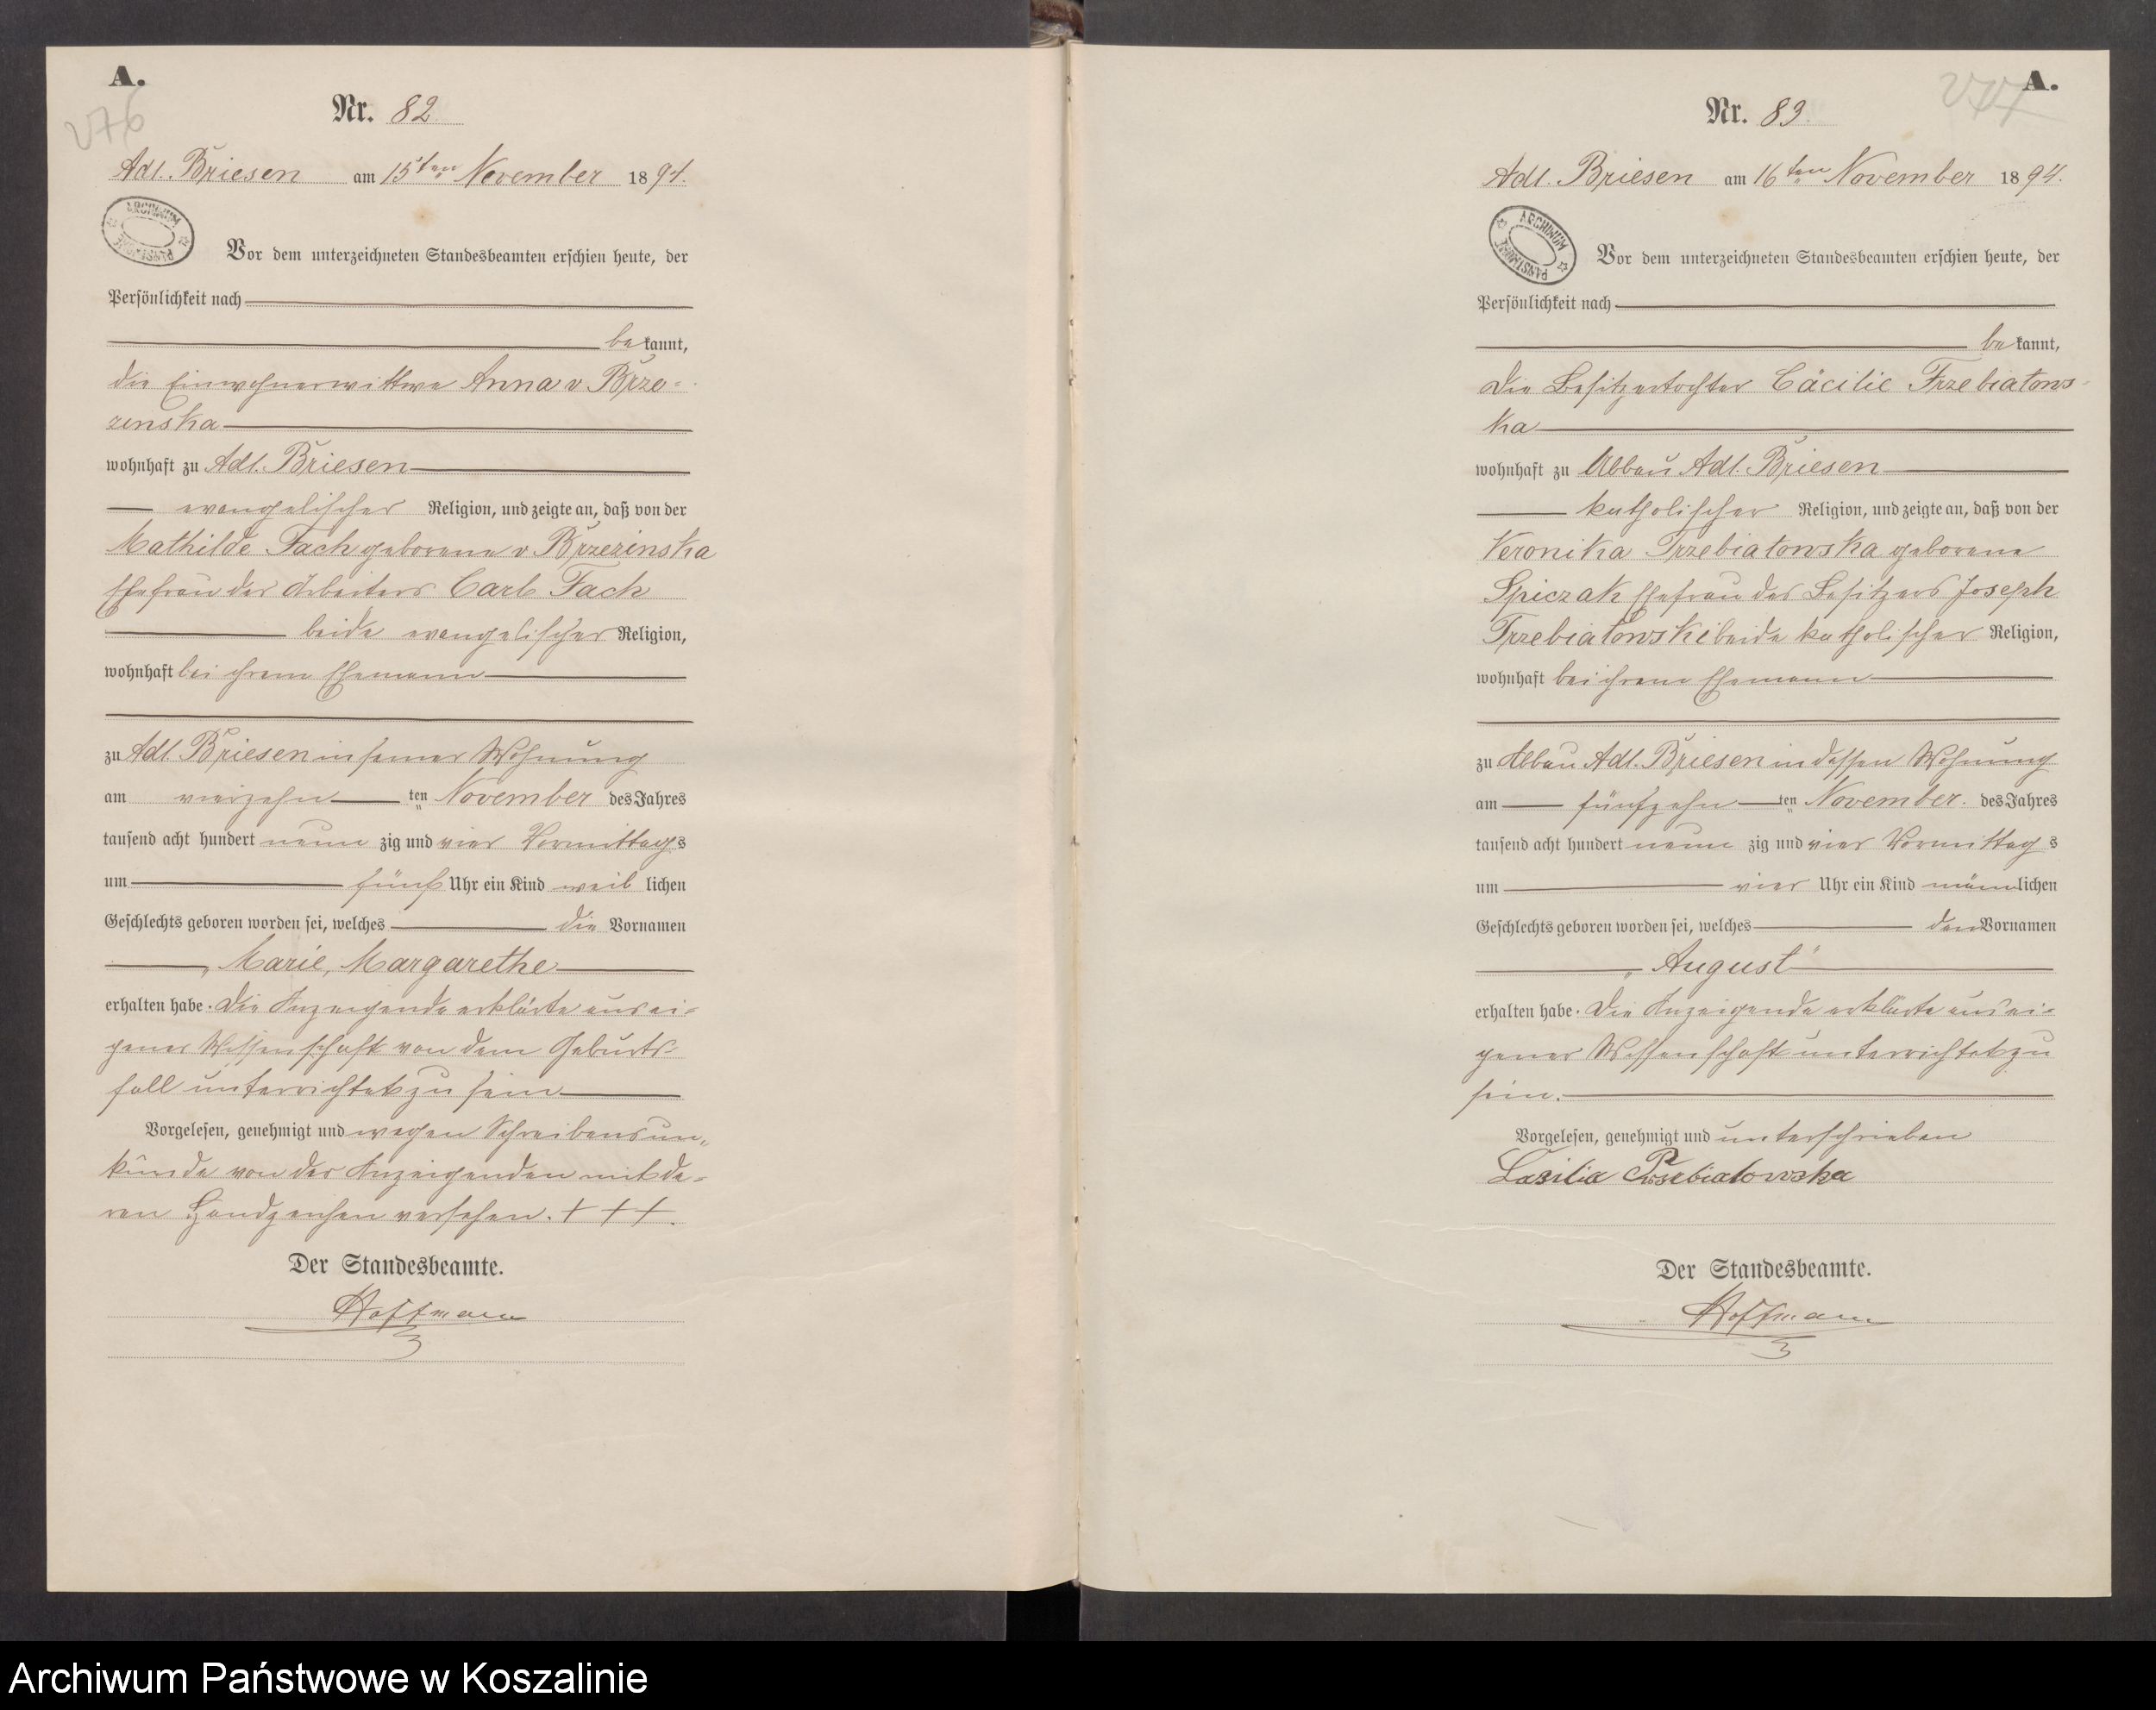 A.
276
Nr. 82
Adl. Briesen am 15ten November 1894.
ARCHIWUM PAŃSTWOWE
Vor dem unterzeichneten Standesbeamten erschien heute, der
Persönlichkeit nach
bekannt,
die Einwohnerwittwe Anna v. Brze-
zinska
wohnhaft zu Adl. Briesen
evangelischer Religion, und zeigte an, daß von der
Mathilde Fach geborene v Brzezinska
Ehefrau des Arbeiters Carl Fach
beide evangelischer Religion,
wohnhaft bei ihrem Ehemann
zu Adl. Briesen in seiner Wohnung
am vierzehn ten November des Jahres
tausend acht hundert neun zig und vier Vormittags
um fünf Uhr ein Kind weib lichen
Geschlechts geboren worden sei, welches die Vornamen
„Marie, Margarethe
erhalten habe. Die Anzeigende erklärte aus ei-
gener Wissenschaft von dem Geburts-
fall unterrichtet zu sein
Vorgelesen, genehmigt und wegen Schreibensun-
kunde von der Anzeigenden mit de-
ren Handzeichen versehen. + + +.
Der Standesbeamte.
Hoffmann
A.
277
Nr. 83.
Adl. Briesen am 16ten November 1894.
ARCHIWUM PAŃSTWOWE
Vor dem unterzeichneten Standesbeamten erschien heute, der
Persönlichkeit nach
bekannt,
die Besitzertochter Cäcilie Trzebiatows-
ka
wohnhaft zu Abbau Adl. Briesen
katholischer Religion, und zeigte an, daß von der
Veronika Trzebiatowska geborene
Spiczak Ehefrau des Besitzers Joseph
Trzebiatowski beide katholischer Religion,
wohnhaft bei ihrem Ehemann
zu Abbau Adl. Briesen in dessen Wohnung
am fünfzehn ten November. des Jahres
tausend acht hundert neun zig und vier Vormittag s
um vier Uhr ein Kind männlichen
Geschlechts geboren worden sei, welches den Vornamen
„August"
erhalten habe. Die Anzeigende erklärte aus ei-
gener Wissenschaft unterrichtet zu
sein.
Vorgelesen, genehmigt und unterschrieben
Cäsilia Trzebiatowska
Der Standesbeamte.
Hoffmann
Archiwum Państwowe w Koszalinie